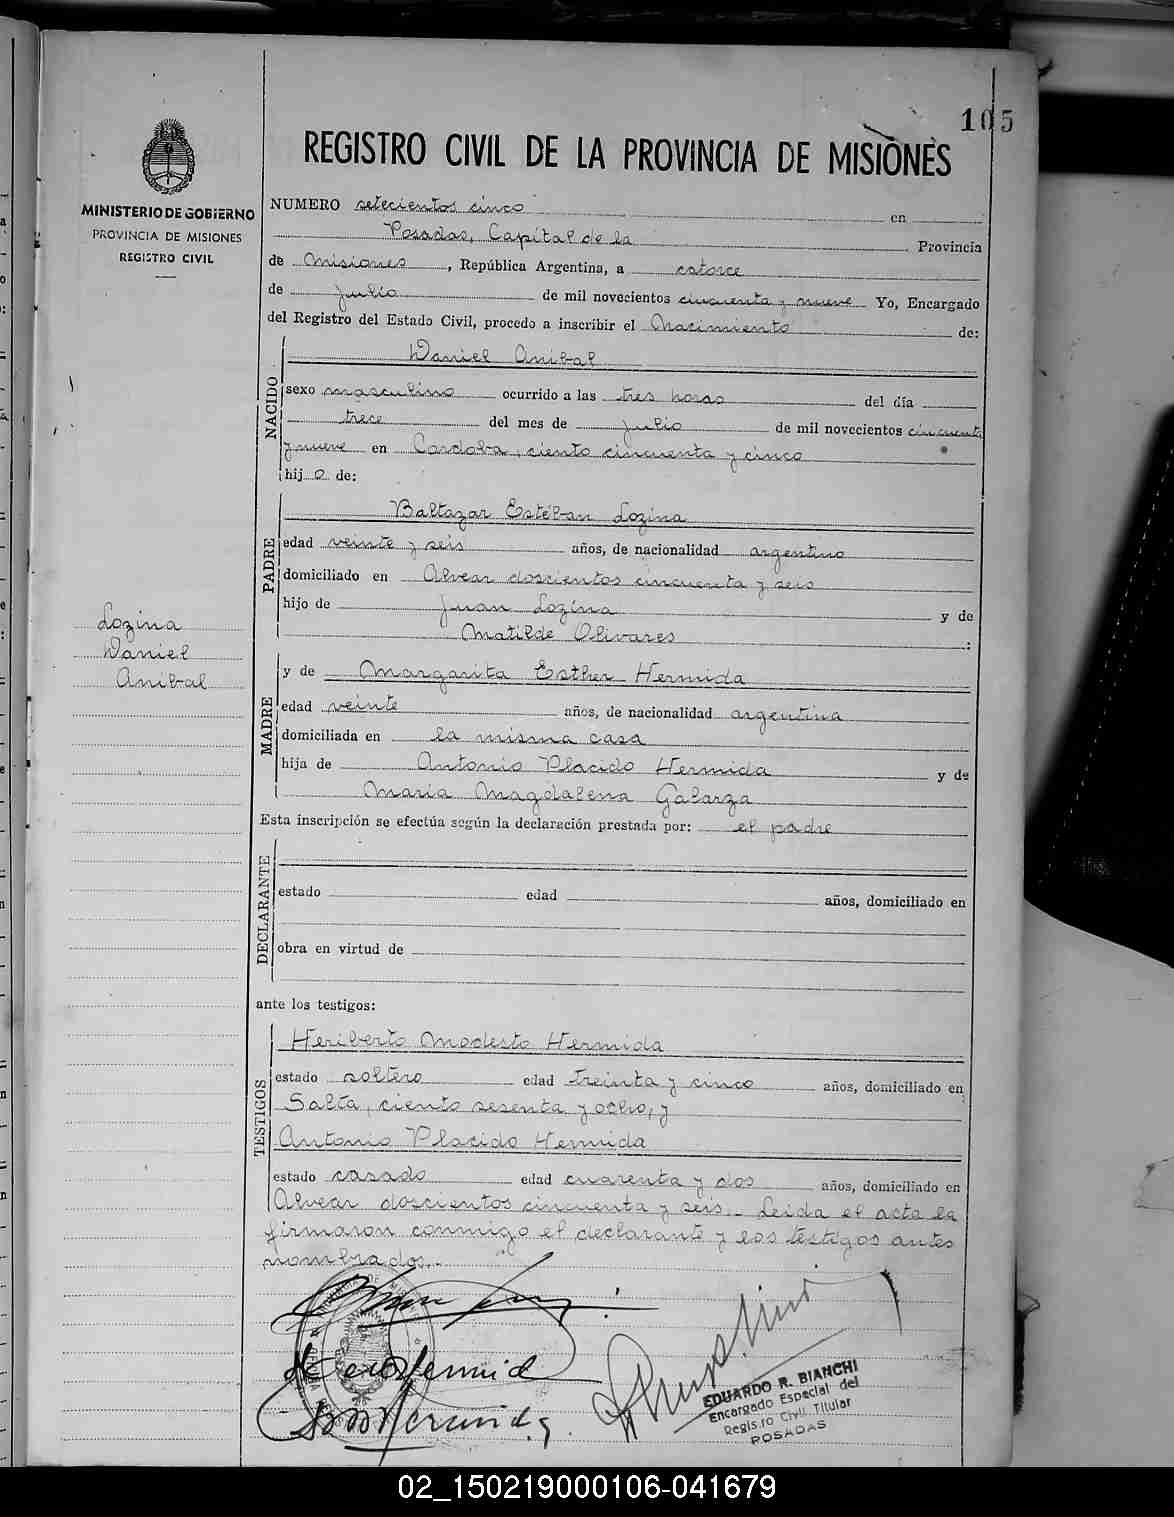 105
REGISTRO CIVIL DE LA PROVINCIA DE MISIONES
MINISTERIO DE GOBIERNO
PROVINCIA DE MISIONES
REGISTRO CIVIL
NUMERO setecientos cinco en
Posadas, Capital de la Provincia
de Misiones, República Argentina, a catorce
de Julio de mil novecientos cincuenta y nueve Yo, Encargado
del Registro del Estado Civil, procedo a inscribir el Nacimiento de:
NACIDO
Daniel Anibal
sexo masculino ocurrido a las tres horas del día
trece del mes de julio de mil novecientos cincuenta
y nueve en Cordoba, ciento cincuenta y cinco
hijo de:
PADRE
Baltazar Estéban Lozina
edad veinte y seis años, de nacionalidad argentino
domiciliado en Alvear doscientos cincuenta y seis
hijo de Juan Lozina y de
Matilde Olivares :
Lozina
Daniel
Anibal
MADRE
y de Margarita Esther Hermida
edad veinte años, de nacionalidad argentina
domiciliada en la misma casa
hija de Antonio Placido Hermida y de
Maria Magdalena Galarza
Esta inscripción se efectúa según la declaración prestada por: el padre
DECLARANTE
estado edad años, domiciliado en
obra en virtud de
ante los testigos:
TESTIGOS
Heriberto Modesto Hermida
estado soltero edad treinta y cinco años, domiciliado en
Salta, ciento sesenta y ocho, y
Antonio Placido Hermida
estado casado edad cuarenta y dos años, domiciliado en
Alvear doscientos cincuenta y seis.- Leida el acta la
firmaron conmigo el declarante y los testigos antes
nombrados.-
EDUARDO R. BIANCHI
Encargado Especial del
Registro Civil Titular
POSADAS
02_150219000106-041679